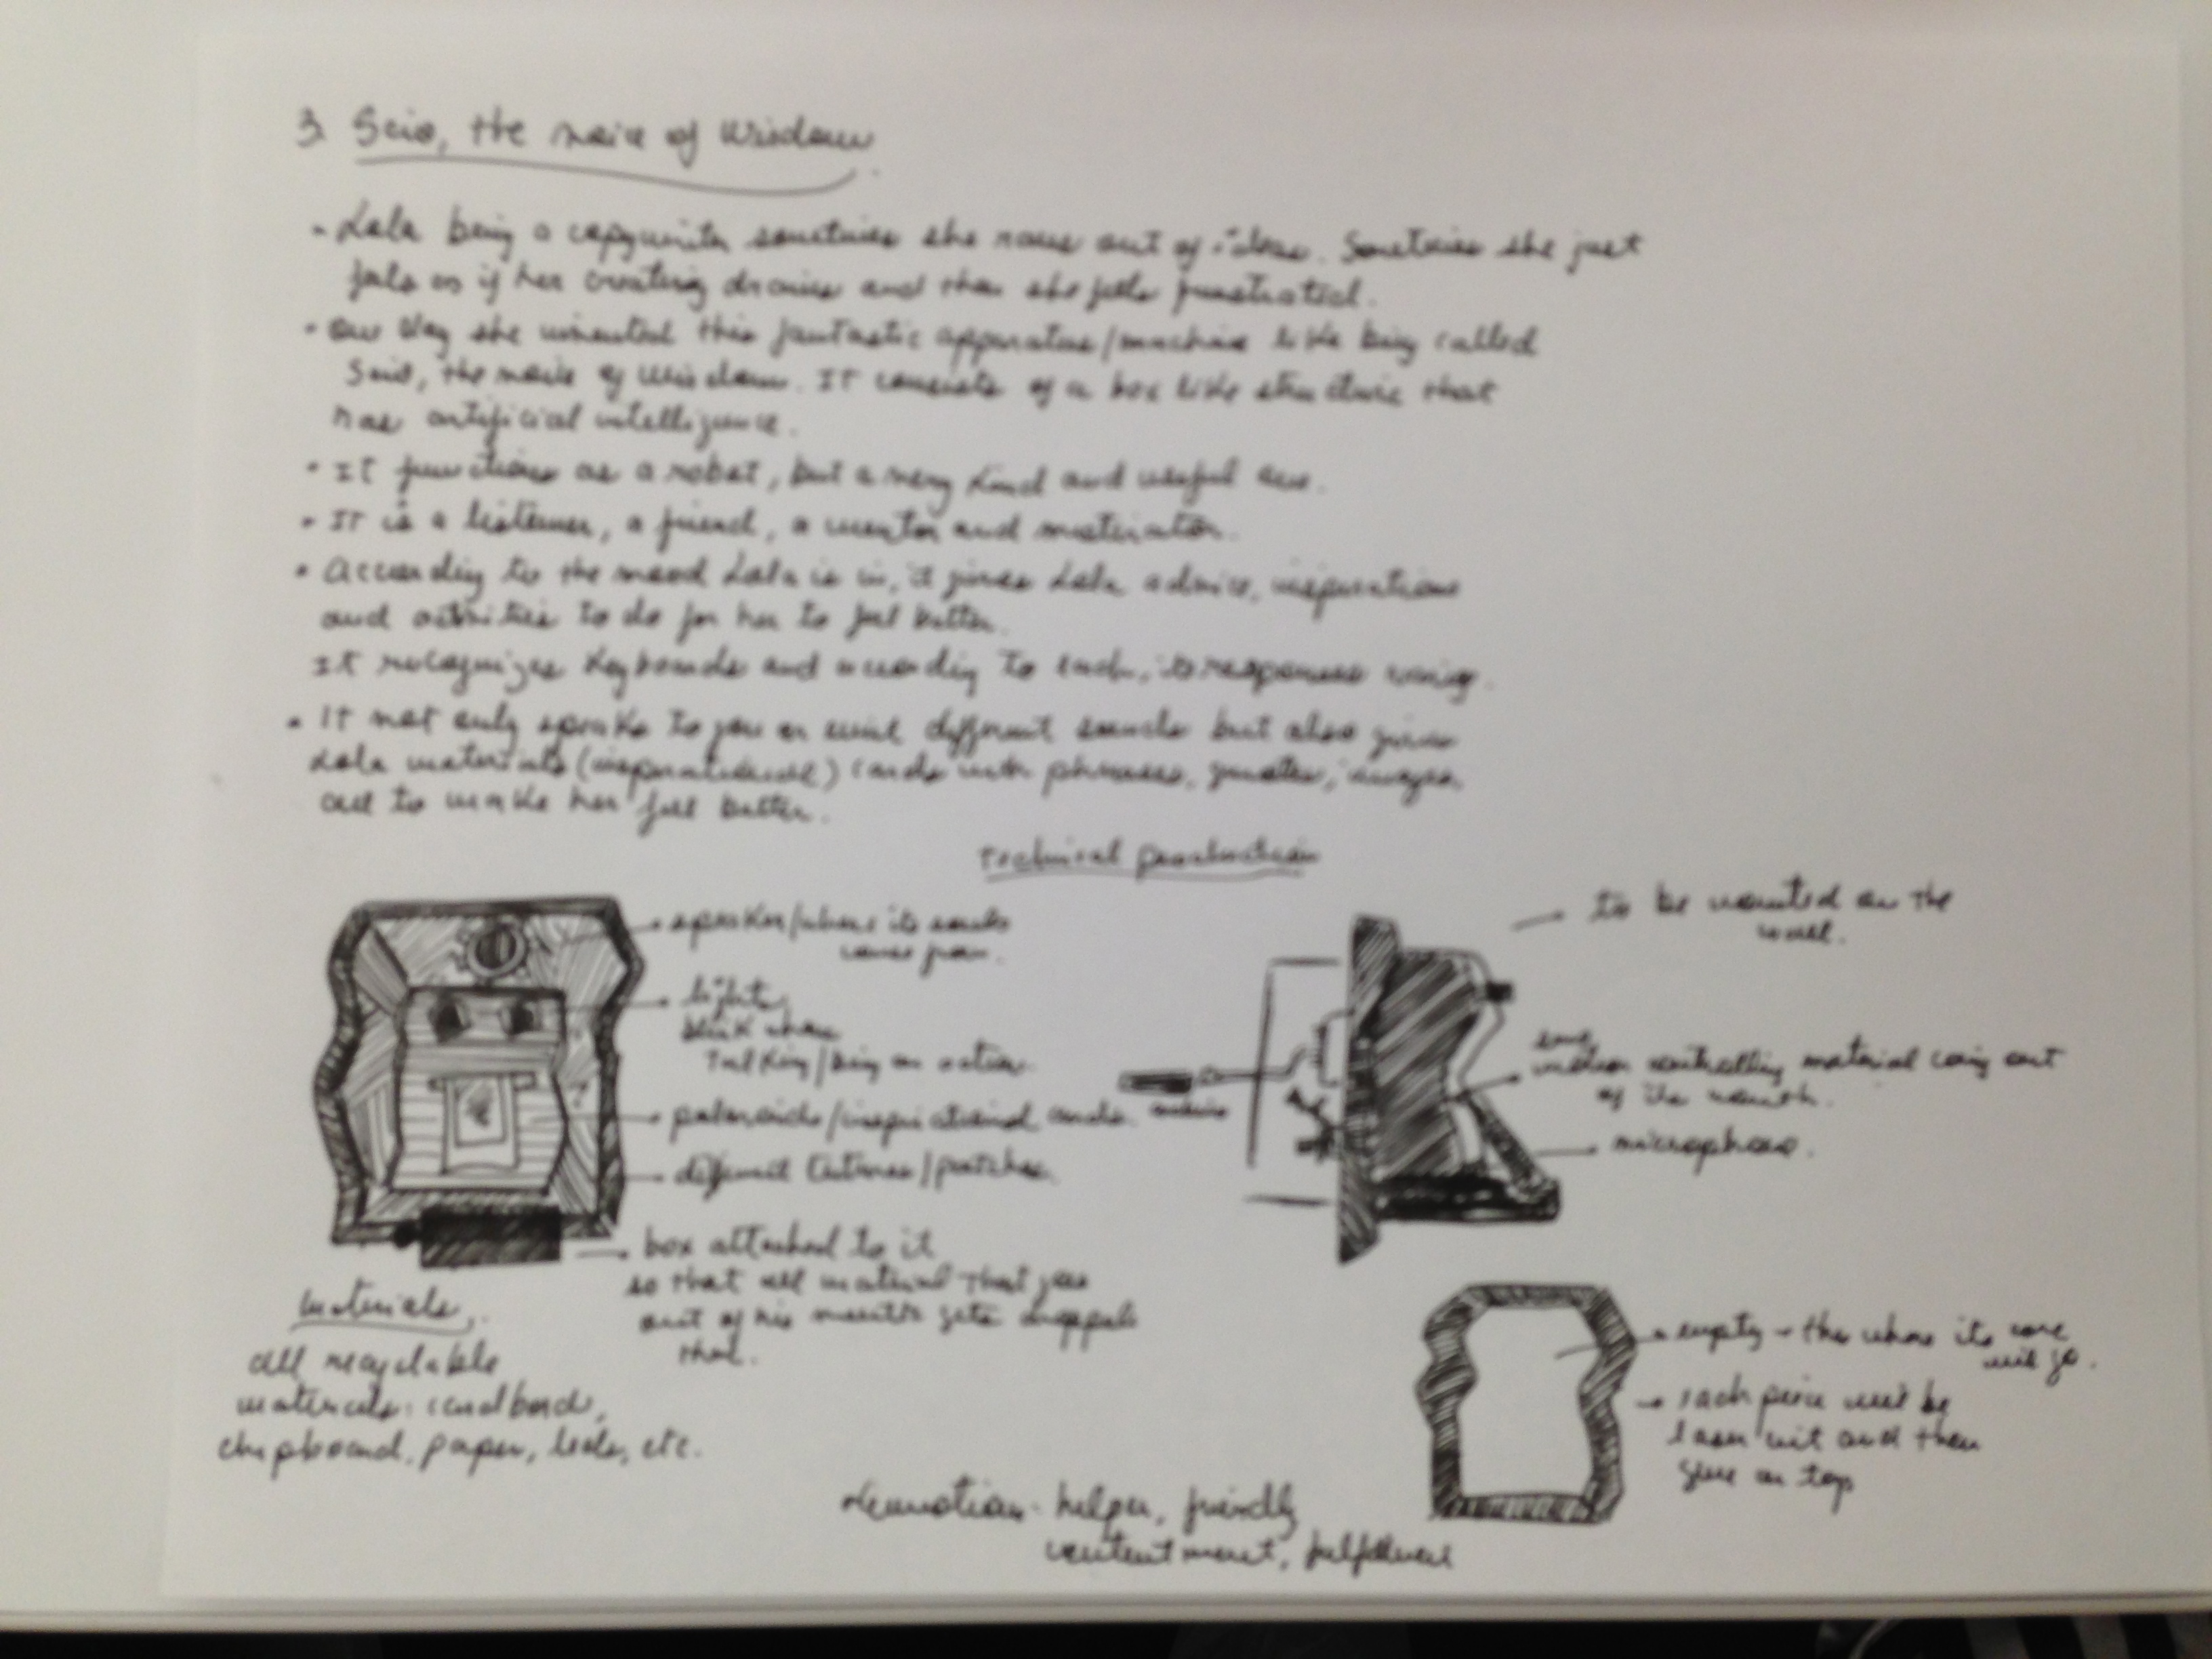 3. Scio, the voice of wisdom.
- Lola being a copywriter sometimes she runs out of ideas. Sometimes she just
feels as if her creativity drains and then she feels frustrated.
- One day she invented this fantastic apparatus/machine like being called
Scio, the voice of wisdom. It consists of a box like structure that
has artificial intelligence.
- It functions as a robot, but a very kind and useful one.
- It is a listener, a friend, a mentor and motivator.
- According to the mood Lola is in, it gives Lola advice, inspirations
and activities to do for her to feel better.
It recognizes keyboards and according to each, its responses vary.
- It not only speaks to you or emit different sounds but also gives
Lola materials (inspirational) cards with phrases, quotes, images,
all to make her feel better.
Technical production
speaker/where its sounds
comes from.
lights
blink when
talking/being on action.
polaroids/inspirational cards.
different textures/patches.
box attached to it
so that all material that goes
out of his mouth gets dropped
there.
Materials.
all recyclable
materials: cardboard,
chipboard, paper, leds, etc.
to be mounted on the
wall.
motor controlling material coming out
of its mouth.
microphone.
empty - the where its core
will go.
each piece will be
laser cut and then
glue on top
helper, friendly
contentment, fulfillment